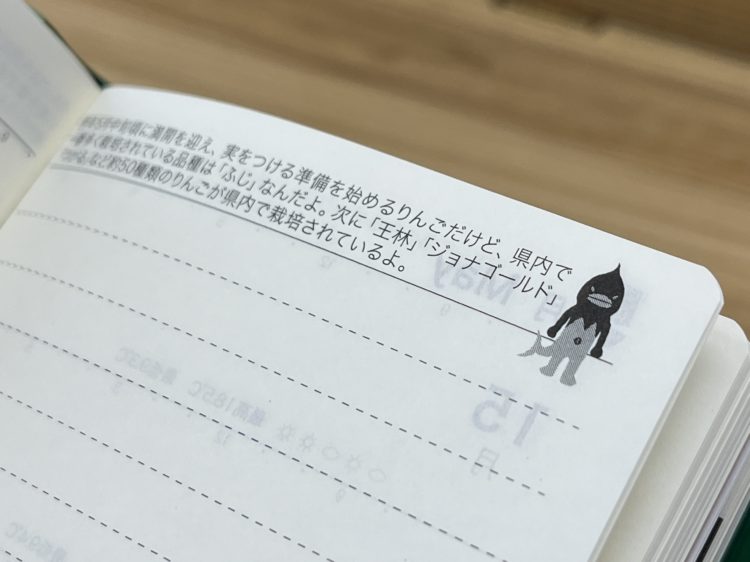 5月中旬頃に満開を迎え、実をつける準備を始めるりんごだけど、県内で
一番多く栽培されている品種は「ふじ」なんだよ。次に「王林」「ジョナゴールド」
「つがる」など約50種類のりんごが県内で栽培されているよ。